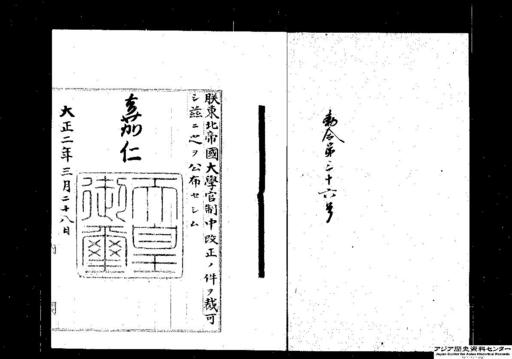 勅令第三十六号
朕東北帝國大學官制中改正ノ件ヲ裁可
シ茲ニ之ヲ公布セシム
嘉仁
天皇御璽
大正二年三月二十八日
アジア歴史資料センター
Japan Center for Asian Historical Records